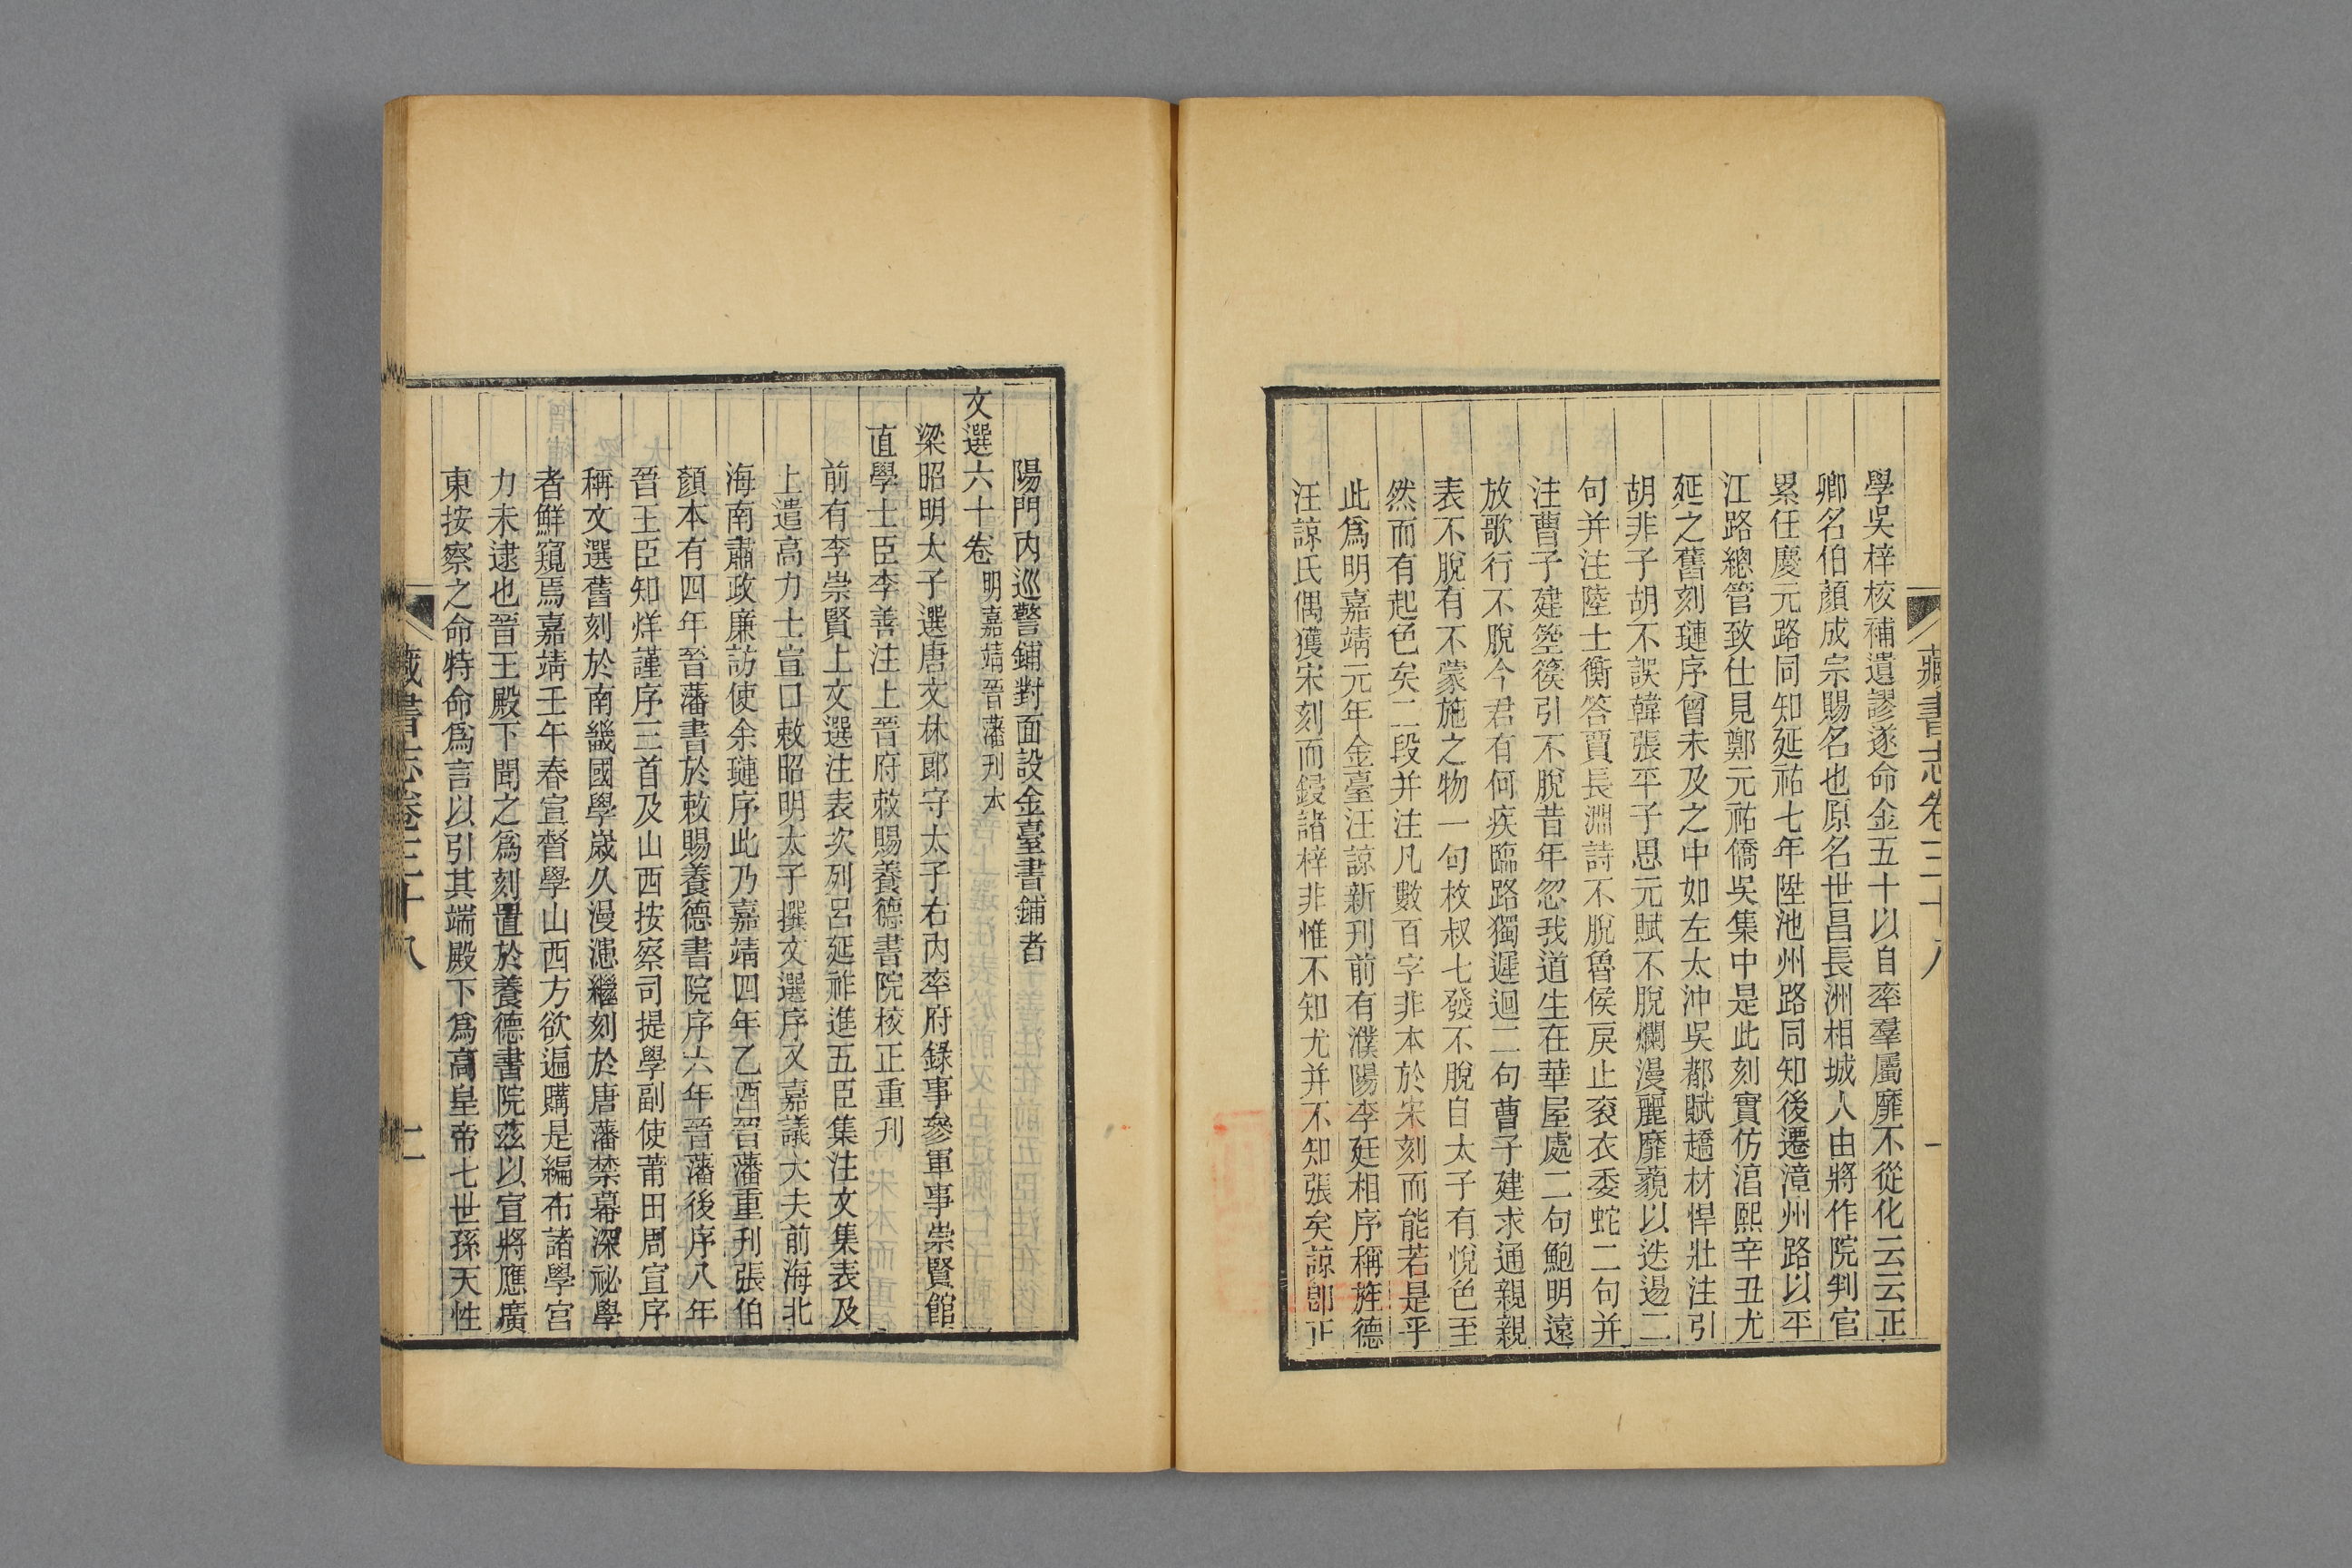 藏書志卷三十八
學吳梓校補遺謬遂命金五十以自率羣屬靡不從化云云正
卿名伯顏成宗賜名也原名世昌長洲相城人由將作院判官
累任慶元路同知延祐七年陞池州路同知後遷漳州路以平
江路總管致仕見鄭元祐僑吳集中是此刻實仿淳熙辛丑尤
延之舊刻璉序曾未及之中如左太沖吳都賦趫材悍壯注引
胡非子胡不誤韓張平子思元賦不脫爛漫麗靡藐以迭逷二
句并注陸士衡答賈長淵詩不脫魯侯戾止袞衣委蛇二句并
注曹子建箜篌引不脫昔年忽我遒生在華屋處二句鮑明遠
放歌行不脫今君有何疾臨路獨遲迴二句曹子建求通親親
表不脫有不蒙施之物一句枚叔七發不脫自太子有悅色至
然而有起色矣二段并注凡數百字非本於宋刻而能若是乎
此爲明嘉靖元年金臺汪諒新刊前有濮陽李廷相序稱旌德
汪諒氏偶獲宋刻而鋟諸梓非惟不知尤并不知張矣諒卽正
陽門內巡警鋪對面設金臺書鋪者
文選六十卷 明嘉靖晉藩刊本
梁昭明太子選唐文林郎守太子右內率府錄事參軍事崇賢館
直學士臣李善注上晉府敕賜養德書院校正重刊
前有李崇賢上文選注表次列呂延祚進五臣集注文集表及
上遣高力士宣口敕昭明太子撰文選序又嘉議大夫前海北
海南肅政廉訪使余璉序此乃嘉靖四年乙酉晉藩重刊張伯
顏本有四年晉藩書於敕賜養德書院序六年晉藩後序八年
晉王臣知烊謹序三首及山西按察司提學副使莆田周宣序
稱文選舊刻於南畿國學嵗久漫漶繼刻於唐藩禁幕深祕學
者鮮窺焉嘉靖壬午春宣督學山西方欲遍購是編布諸學宮
力未逮也晉王殿下聞之爲刻置於養德書院茲以宣將應廣
東按察之命特命爲言以引其端殿下爲高皇帝七世孫天性
藏書志卷三十八